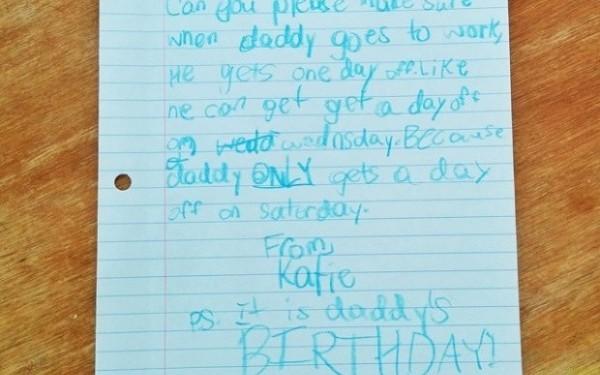 Can you please make sure
when daddy goes to work,
He gets one day off. Like
he can get get a day off
on wedd wednsday. Because
daddy ONLY gets a day
off on Saturday.
From,
Katie
Ps. It is daddy's
BIRTHDAY!